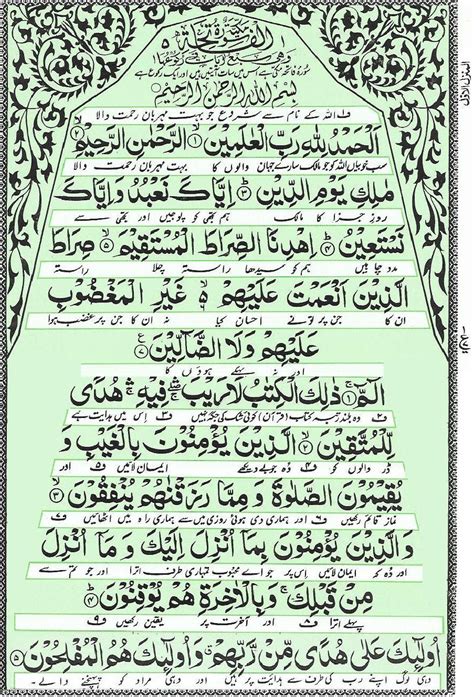 سُوْرَةُ الْفَاتِحَةِ
سورۂ فاتحہ مکی ہے اس میں سات آیتیں ہیں اور ایک رکوع ہے
بِسْمِ اللهِ الرَّحْمٰنِ الرَّحِيْمِ
اللہ کے نام سے شروع جو بہت مہربان رحمت والا
اَلْحَمْدُ لِلّٰهِ رَبِّ الْعٰلَمِيْنَ ۙ﴿۱﴾ الرَّحْمٰنِ الرَّحِيْمِ ۙ﴿۲﴾
سب خوبیاں اللہ کو جو مالک سارے جہان والوں کا بہت مہربان رحمت والا
مٰلِكِ يَوْمِ الدِّيْنِ ؕ﴿۳﴾ اِيَّاكَ نَعْبُدُ وَاِيَّاكَ
روزِ جزا کا مالک ہم تجھی کو پوجیں اور تجھی سے
نَسْتَعِيْنُ ؕ﴿۴﴾ اِهْدِنَا الصِّرَاطَ الْمُسْتَقِيْمَ ۙ﴿۵﴾ صِرَاطَ
مدد چاہیں ہم کو سیدھا راستہ چلا راستہ
الَّذِيْنَ اَنْعَمْتَ عَلَيْهِمْ ۙ﴿۶﴾ غَيْرِ الْمَغْضُوْبِ
ان کا جن پر تو نے احسان کیا نہ ان کا جن پر غضب ہوا
عَلَيْهِمْ وَلَا الضَّآلِّيْنَ ﴿۷﴾
اور نہ بہکے ہوؤں کا
الٓمّٓ ۚ﴿۱﴾ ذٰلِكَ الْكِتٰبُ لَا رَيْبَ ۛ فِيْهِ ۛ هُدًى
وہ بلند رتبہ کتاب (قرآن) کوئی شک کی جگہ نہیں اس میں ہدایت ہے
لِّلْمُتَّقِيْنَ ۙ﴿۲﴾ الَّذِيْنَ يُؤْمِنُوْنَ بِالْغَيْبِ وَ
ڈر والوں کو وہ جو بے دیکھے ایمان لائیں اور
يُقِيْمُوْنَ الصَّلٰوةَ وَ مِمَّا رَزَقْنٰهُمْ يُنْفِقُوْنَ ۙ﴿۳﴾
نماز قائم رکھیں اور ہماری دی ہوئی روزی میں سے ہماری راہ میں اٹھائیں
وَالَّذِيْنَ يُؤْمِنُوْنَ بِمَآ اُنْزِلَ اِلَيْكَ وَ مَآ اُنْزِلَ
اور وہ کہ ایمان لائیں اس پر جو اے محبوب تمہاری طرف اترا اور جو تم سے
مِنْ قَبْلِكَ ۚ وَبِالْاٰخِرَةِ هُمْ يُوْقِنُوْنَ ؕ﴿۴﴾
پہلے اترا اور آخرت پر یقین رکھیں
اُولٰٓئِكَ عَلٰى هُدًى مِّنْ رَّبِّهِمْ ۗ وَ اُولٰٓئِكَ هُمُ الْمُفْلِحُوْنَ ﴿۵﴾
وہی لوگ اپنے رب کی طرف سے ہدایت پر ہیں اور وہی مراد کو پہنچنے والے۔